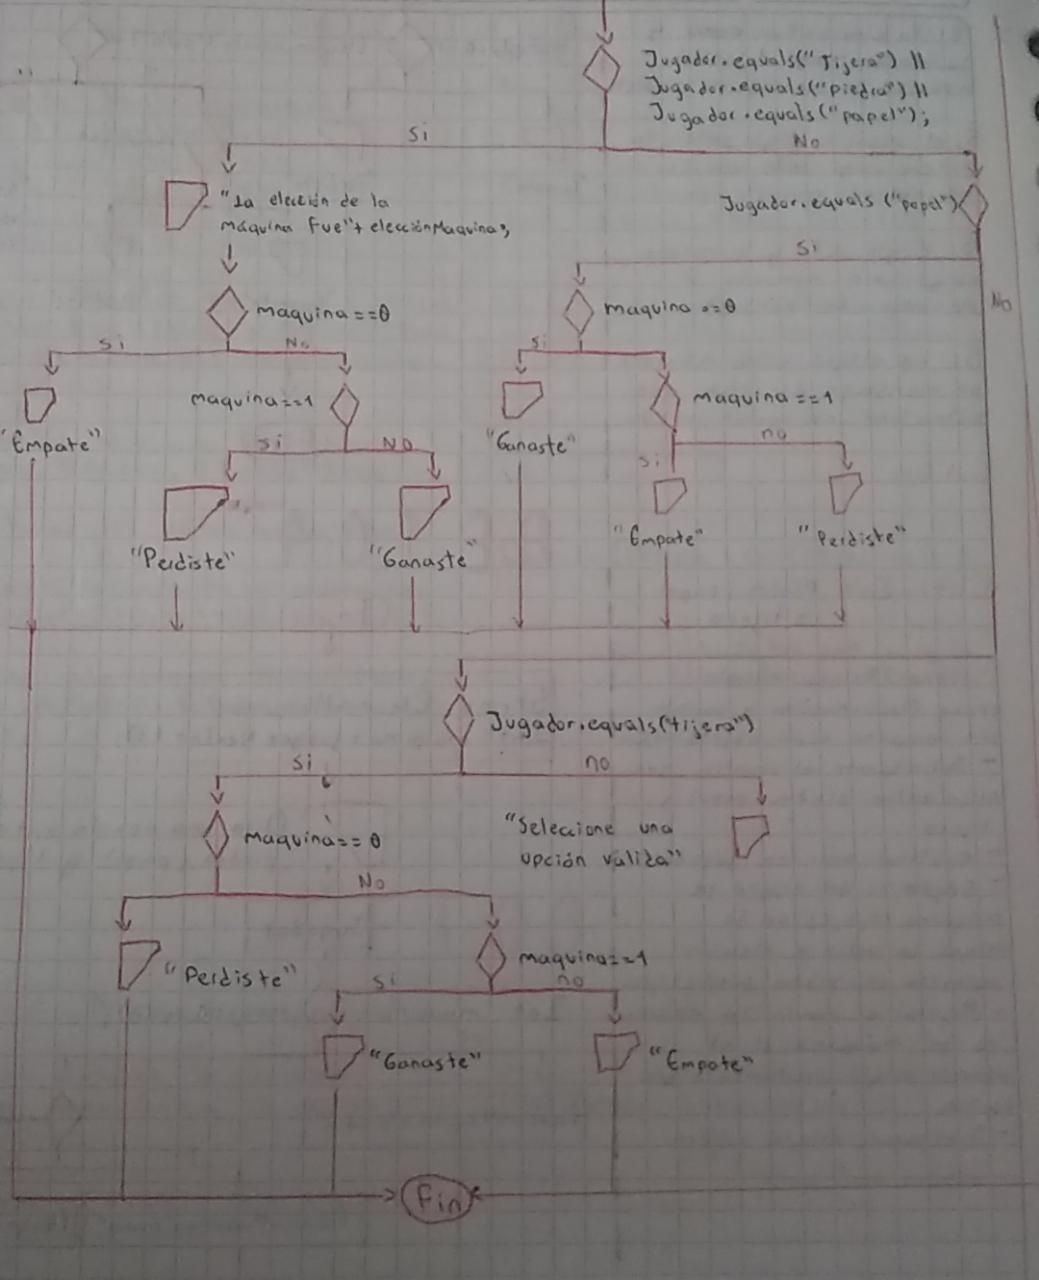 Jugador.equals("Tijera") ||
Jugador.equals("piedra") ||
Jugador.equals("papel");
Si
No
"La elección de la
máquina fue"+ elecciónMaquina;
Jugador.equals ("papel")
Si
No
maquina==0
maquina ==0
Si
No
si
maquina==1
maquina ==1
"Empate"
"Ganaste"
si
NO
si
no
"Perdiste"
"Ganaste"
"Empate"
"Perdiste"
Jugador.equals(tijera")
Si
no
maquina==0
"Seleccione una
opción valida"
No
"Perdiste"
maquina==1
si
no
"Ganaste"
"Empate"
Fin